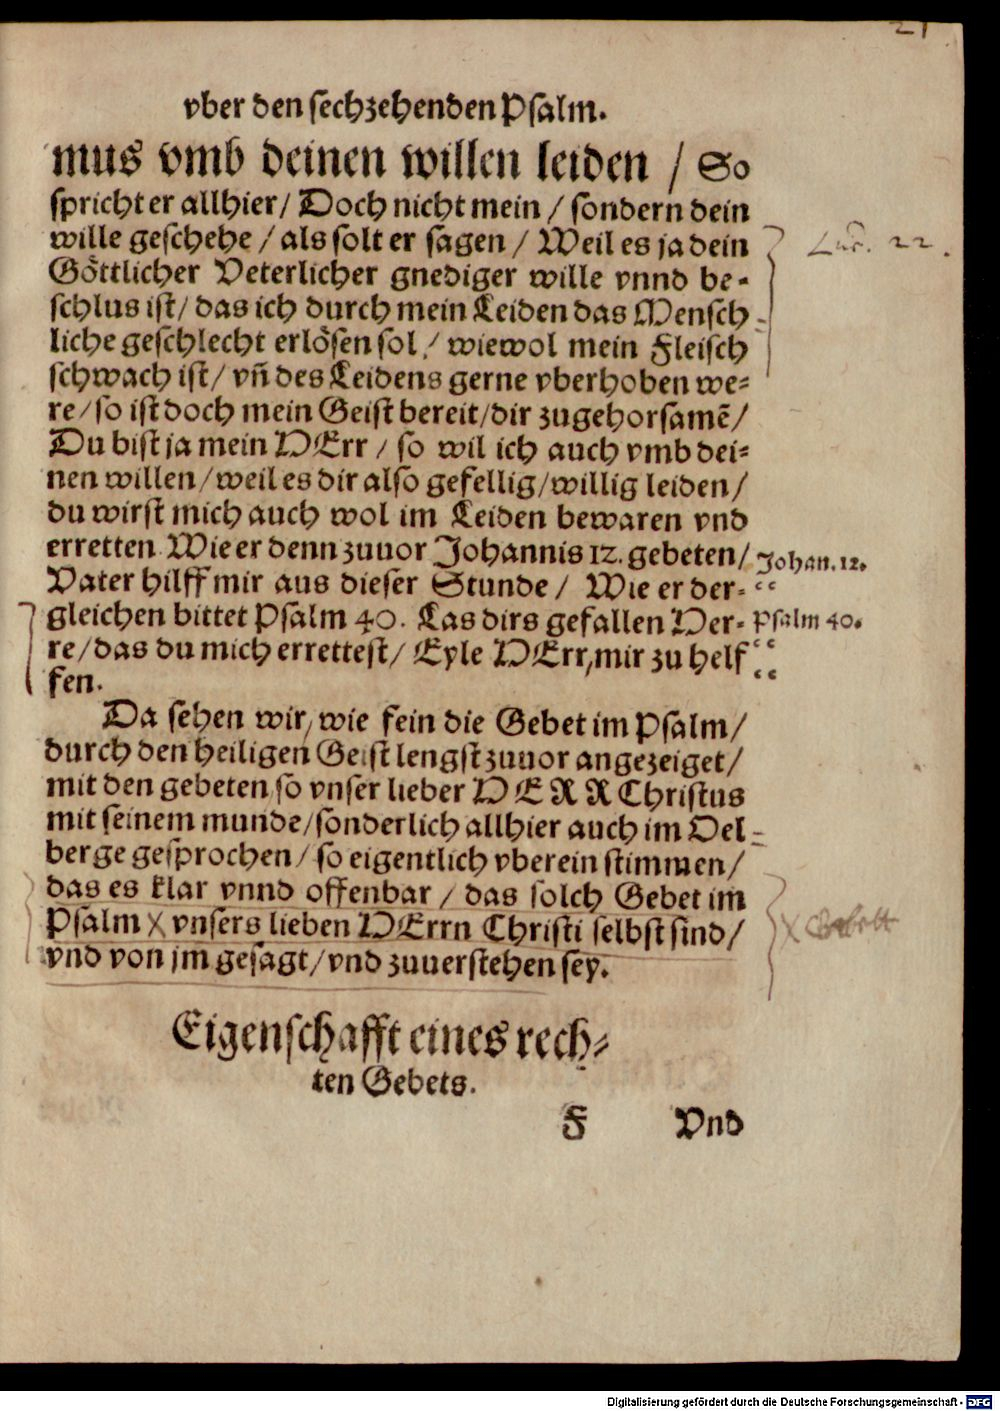 21
vber den sechzehenden Psalm.
mus vmb deinen willen leiden / So
spricht er allhier / Doch nicht mein / sondern dein
wille geschehe / als solt er sagen / Weil es ja dein
Luc. 22.
Göttlicher Veterlicher gnediger wille vnnd be-
schlus ist / das ich durch mein Leiden das Mensch-
liche geschlecht erlösen sol / wiewol mein Fleisch
schwach ist / vñ des Leidens gerne vberhoben we-
re / so ist doch mein Geist bereit / dir zugehorsamē /
Du bist ja mein HErr / so wil ich auch vmb dei-
nen willen / weil es dir also gefellig / willig leiden /
du wirst mich auch wol im Leiden bewaren vnd
erretten. Wie er denn zuuor Johannis 12. gebeten /
Johan. 12.
Vater hilff mir aus dieser Stunde / Wie er der-
gleichen bittet Psalm 40. Las dirs gefallen Her-
Psalm 40.
re / das du mich errettest / Eyle HErr, mir zu helf
fen.
Da sehen wir, wie fein die Gebet im Psalm /
durch den heiligen Geist lengst zuuor angezeiget /
mit den gebeten so vnser lieber HERR Christus
mit seinem munde / sonderlich allhier auch im Oel-
berge gesprochen / so eigentlich vberein stimmen /
das es klar vnnd offenbar / das solch Gebet im
Psalm X vnsers lieben HErrn Christi selbst sind /
X
vnd von jm gesagt / vnd zuuerstehen sey.
Eigenschafft eines rech-
ten Gebets.
F Vnd
Digitalisierung gefördert durch die Deutsche Forschungsgemeinschaft - DFG